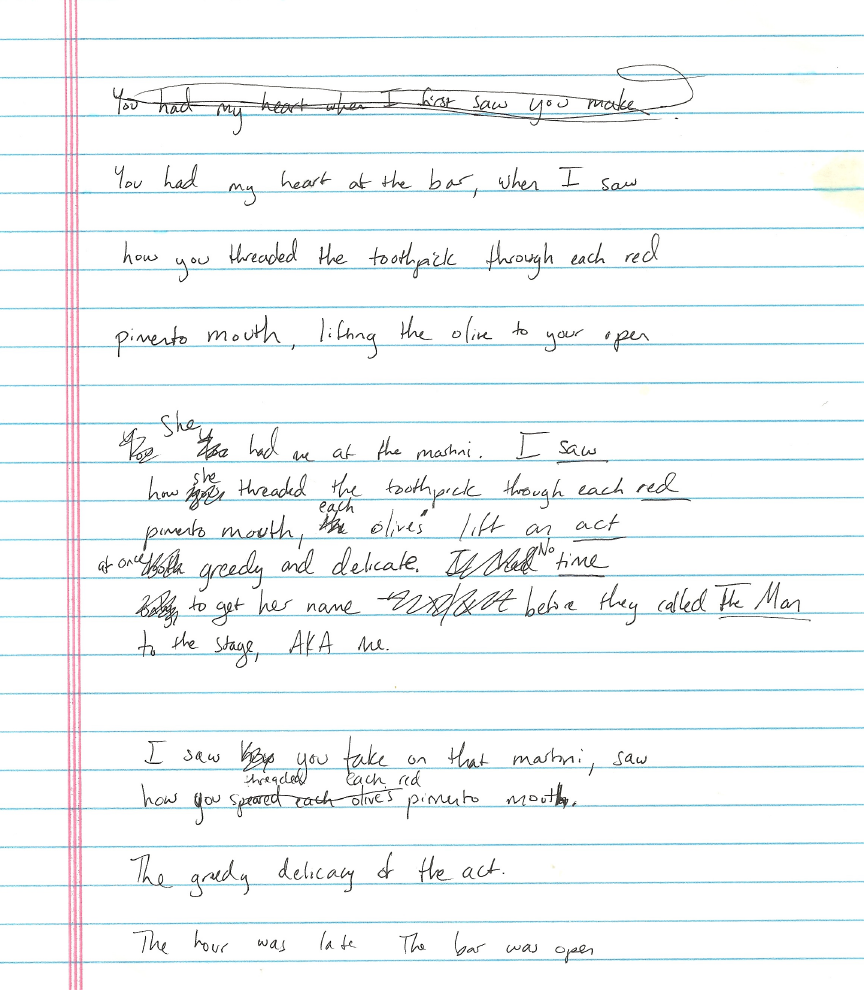 You had my heart when I first saw you make
You had my heart at the bar, when I saw
how you threaded the toothpick through each red
pimento mouth, lifting the olive to your open
She had me at the martini. I saw
how she threaded the toothpick through each red
pimento mouth, each olive's lift an act
at once greedy and delicate. No time
to get her name before they called The Man
to the stage, AKA me.
I saw you take on that martini, saw
threaded each red
how you speared each olive's pimento mouth.
The greedy delicacy of the act.
The hour was late The bar was open